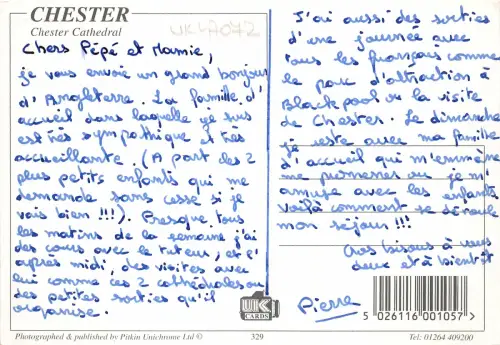 CHESTER
Chester Cathedral
UK47072
Chers Pépé et Mamie,
je vous envoie un grand bonjour
d'Angleterre. La famille d'
accueil dans laquelle je suis
est très sympathique et très
accueillante. (A part les 2
plus petits enfants qui me
demande sans cesse si je
vais bien !!!). Presque tous
les matins de la semaine j'ai
des cours avec le tuteur, et l'
après midi, des visites avec
lui comme ces 2 cathédrales ou
des petites sorties qu'il
organise.
J'ai aussi des sorties
d'une journée avec
tous les français comme
le parc d'attraction à
Blackpool ou la visite
de Chester. Le dimanche
je reste avec ma famille
d'accueil qui m'emmène
me promener ou je m'
amuse avec les enfants
Voilà comment se déroule
mon séjour !!!
Gros bisous à vous
deux et à bientôt
Pierre
UK
CARDS
5 026116 001057 >
Photographed & published by Pitkin Unichrome Ltd ©
329
Tel: 01264 409200